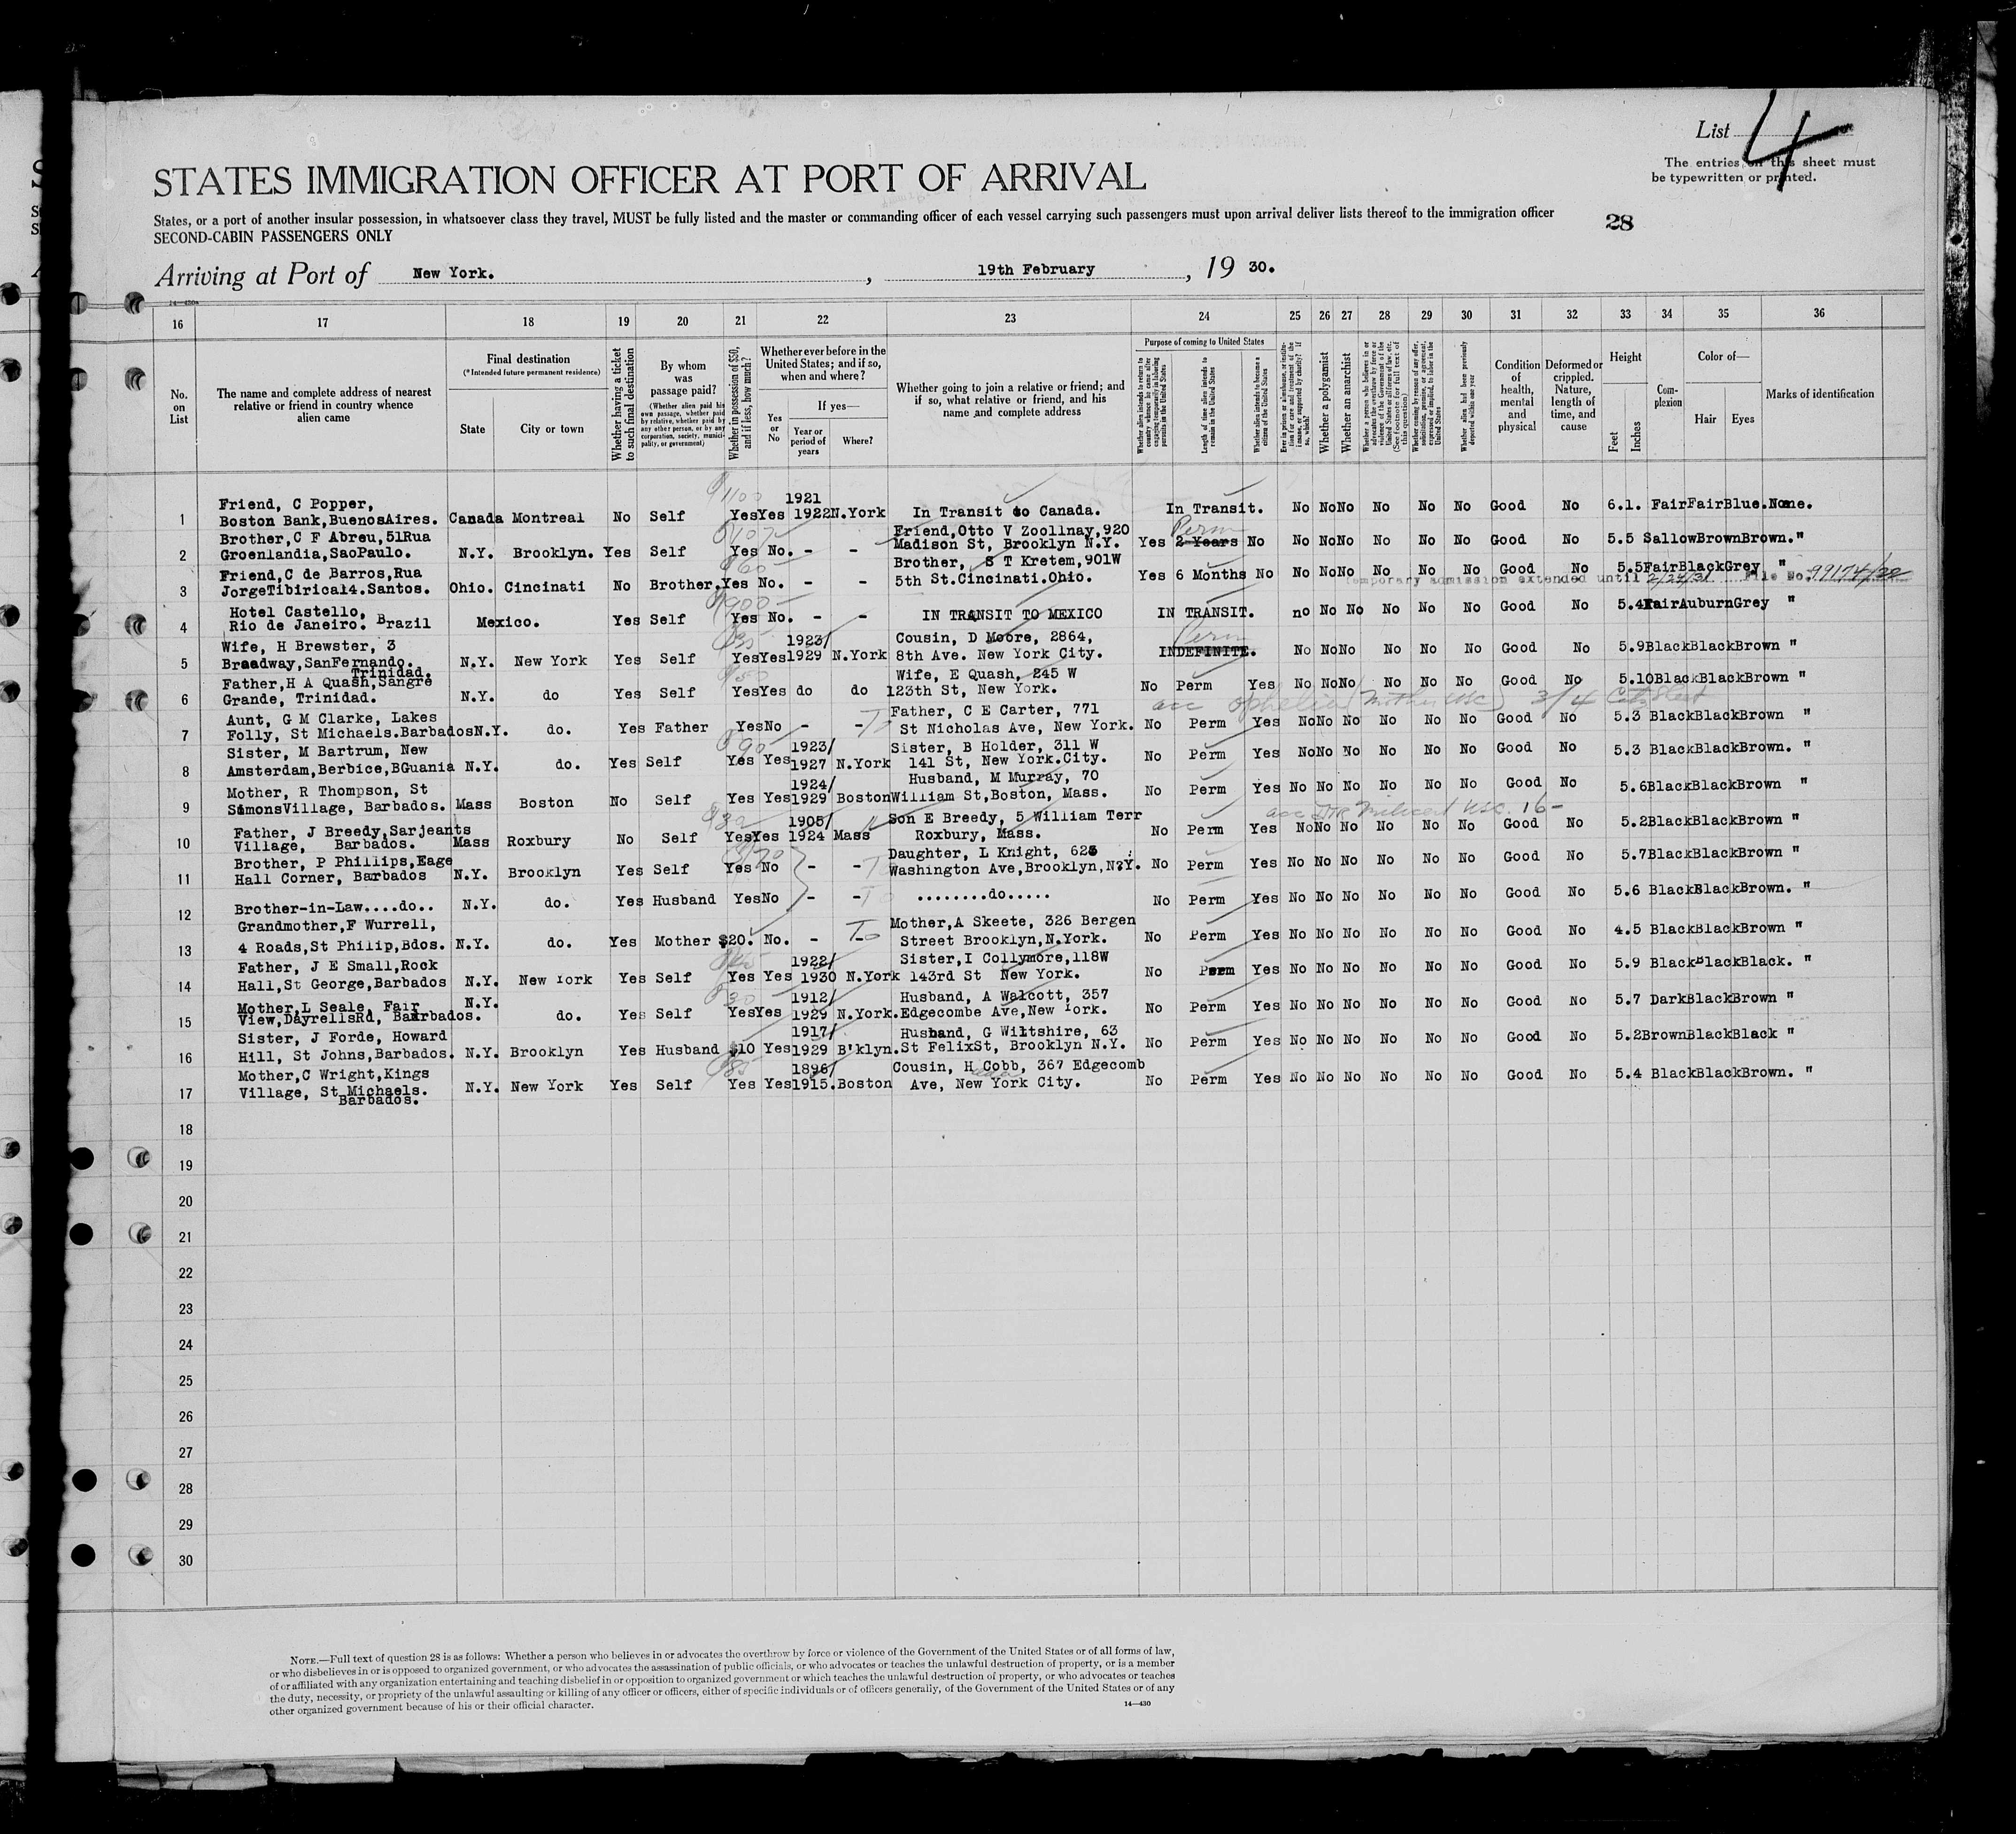 List 4
The entries on this sheet must
be typewritten or printed.
STATES IMMIGRATION OFFICER AT PORT OF ARRIVAL
States, or a port of another insular possession, in whatsoever class they travel, MUST be fully listed and the master or commanding officer of each vessel carrying such passengers must upon arrival deliver lists thereof to the immigration officer
SECOND-CABIN PASSENGERS ONLY
28
Arriving at Port of New York. , 19th February , 19 30.
14—430a
16 17 18 19 20 21 22 23 24 25 26 27 28 29 30 31 32 33 34 35 36
No. on List
The name and complete address of nearest relative or friend in country whence alien came
Final destination (*Intended future permanent residence)
State
City or town
Whether having a ticket to such final destination
By whom was passage paid?
(Whether alien paid his own passage, whether paid by relative, whether paid by any other person, or by any corporation, society, municipality, or government)
Whether in possession of $50, and if less, how much?
Whether ever before in the United States; and if so, when and where?
Yes or No
If yes—
Year or period of years
Where?
Whether going to join a relative or friend; and if so, what relative or friend, and his name and complete address
Purpose of coming to United States
Whether alien intends to return to country whence he came after engaging temporarily in laboring pursuits in the United States
Length of time alien intends to remain in the United States
Whether alien intends to become a citizen of the United States
Ever in prison or almshouse, or institution for care and treatment of the insane, or supported by charity? If so, which?
Whether a polygamist
Whether an anarchist
Whether a person who believes in or advocates the overthrow by force or violence of the Government of the United States or all forms of law, etc. (See footnote for full text of this question)
Whether coming by reason of any offer, solicitation, promise, or agreement, expressed or implied, to labor in the United States
Whether alien had been previously deported within one year
Condition of health, mental and physical
Deformed or crippled. Nature, length of time, and cause
Height
Feet
Inches
Complexion
Color of—
Hair
Eyes
Marks of identification
$1100 1921
Friend, C Popper,
1 Boston Bank,BuenosAires. Canada Montreal No Self Yes Yes 1922 N.York In Transit to Canada. In Transit. No No No No No No Good No 6.1. Fair Fair Blue. None.
Brother, C F Abreu, 51Rua Friend,Otto V Zoollnay,920 Perm
2 Groenlandia,SaoPaulo. N.Y. Brooklyn. Yes Self Yes No. - - Madison St, Brooklyn N.Y. Yes 2 Years No No No No No No No Good No 5.5 Sallow Brown Brown. "
Friend,C de Barros,Rua $60 Brother, S T Kretem,901W
3 JorgeTibirica14.Santos. Ohio. Cincinati No Brother. Yes No. - - 5th St.Cincinati.Ohio. Yes 6 Months No No No No No No No Good No 5.5 Fair Black Grey "
Temporary admission extended until 2/24/31 File No. 99174/38
Hotel Castello, $900
4 Rio de Janeiro. Brazil Mexico. Yes Self Yes No. - - IN TRANSIT TO MEXICO IN TRANSIT. no No No No No No Good No 5.4 Fair Auburn Grey "
Wife, H Brewster, 3 1923/ Cousin, D Moore, 2864, Perm
5 Broadway,SanFernando. Trinidad. N.Y. New York Yes Self Yes Yes 1929 N.York 8th Ave. New York City. INDEFINITE. No No No No No No Good No 5.9 Black Black Brown "
Father,H A Quash,Sangre $50 Wife, E Quash, 245 W
6 Grande, Trinidad. N.Y. do Yes Self Yes Yes do do 123th St, New York. No Perm Yes No No No No No No Good No 5.10 Black Black Brown "
acc Ophelia (Mother USC) 3/4
Aunt, G M Clarke, Lakes Father, C E Carter, 771
7 Folly, St Michaels.Barbados N.Y. do. Yes Father Yes No - - To St Nicholas Ave, New York. No Perm Yes No No No No No No Good No 5.3 Black Black Brown "
Sister, M Bartrum, New $90 1923/ Sister, B Holder, 311 W
8 Amsterdam,Berbice,BGuania N.Y. do. Yes Self Yes Yes 1927 N.York 141 St, New York.City. No Perm Yes No No No No No No Good No 5.3 Black Black Brown. "
Mother, R Thompson, St 1924/ Husband, M Murray, 70
9 SimonsVillage, Barbados. Mass Boston No Self Yes Yes 1929 Boston William St,Boston, Mass. No Perm Yes No No No No No No Good No 5.6 Black Black Brown "
Father, J Breedy,Sarjeants $32 1905/ Son E Breedy, 5 William Terr
10 Village, Barbados. Mass Roxbury No Self Yes Yes 1924 Mass Roxbury, Mass. No Perm Yes No No No No No No Good No 5.2 Black Black Brown "
Brother, P Phillips,Eage Daughter, L Knight, 623
11 Hall Corner, Barbados N.Y. Brooklyn Yes Self Yes No - - To Washington Ave,Brooklyn,N.Y. No Perm Yes No No No No No No Good No 5.7 Black Black Brown "
12 Brother-in-Law....do.. N.Y. do. Yes Husband Yes No - - To ........do..... No Perm Yes No No No No No No Good No 5.6 Black Black Brown. "
Grandmother,F Wurrell, Mother,A Skeete, 326 Bergen
13 4 Roads,St Philip,Bdos. N.Y. do. Yes Mother $20. No. - - To Street Brooklyn,N.York. No Perm Yes No No No No No No Good No 4.5 Black Black Brown "
Father, J E Small,Rock 1922/ Sister,I Collymore,118W
14 Hall,St George,Barbados N.Y. New York Yes Self Yes Yes 1930 N.York 143rd St New York. No Perm Yes No No No No No No Good No 5.9 Black Black Black. "
Mother,L Seale, Fair $30 1912/ Husband, A Walcott, 357
15 View,DayrellsRd, Barbados. N.Y. do. Yes Self Yes Yes 1929 N.York. Edgecombe Ave,New York. No Perm Yes No No No No No No Good No 5.7 Dark Black Brown "
Sister, J Forde, Howard 1917/ Husband, G Wiltshire, 63
16 Hill, St Johns,Barbados. N.Y. Brooklyn Yes Husband $10 Yes 1929 B'klyn. St FelixSt, Brooklyn N.Y. No Perm Yes No No No No No No Good No 5.2 Brown Black Black "
Mother,C Wright,Kings $85 1896/ Cousin, H Cobb, 367 Edgecomb
17 Village, St Michaels. Barbados. N.Y. New York Yes Self Yes Yes 1915. Boston Ave, New York City. No Perm Yes No No No No No No Good No 5.4 Black Black Brown. "
18
19
20
21
22
23
24
25
26
27
28
29
30
NOTE.—Full text of question 28 is as follows: Whether a person who believes in or advocates the overthrow by force or violence of the Government of the United States or of all forms of law,
or who disbelieves in or is opposed to organized government, or who advocates the assassination of public officials, or who advocates or teaches the unlawful destruction of property, or is a member
of or affiliated with any organization entertaining and teaching disbelief in or opposition to organized government or which teaches the unlawful destruction of property, or who advocates or teaches
the duty, necessity, or propriety of the unlawful assaulting or killing of any officer or officers, either of specific individuals or of officers generally, of the Government of the United States or of any
other organized government because of his or their official character.
14—430